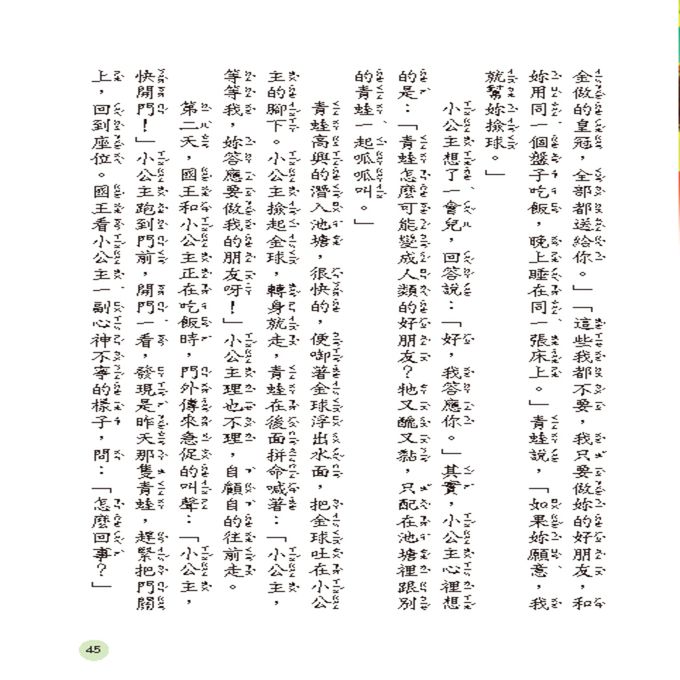 金做的皇冠，全部都送給你。」「這些我都不要，我只要做妳的好朋友，和
妳用同一個盤子吃飯，晚上睡在同一張床上。」青蛙說，「如果妳願意，我
就幫妳撿球。」
小公主想了一會兒，回答說：「好，我答應你。」其實，小公主心裡想
的是：「青蛙怎麼可能變成人類的好朋友？牠又醜又黏，只配在池塘裡跟別
的青蛙一起呱呱叫。」
青蛙高興的潛入池塘，很快的，便啣著金球浮出水面，把金球吐在小公
主的腳下。小公主撿起金球，轉身就走，青蛙在後面拼命喊著：「小公主，
等等我，妳答應要做我的朋友呀！」小公主理也不理，自顧自的往前走。
第二天，國王和小公主正在吃飯時，門外傳來急促的叫聲：「小公主，
快開門！」小公主跑到門前，開門一看，發現是昨天那隻青蛙，趕緊把門關
上，回到座位。國王看小公主一副心神不寧的樣子，問：「怎麼回事？」
45